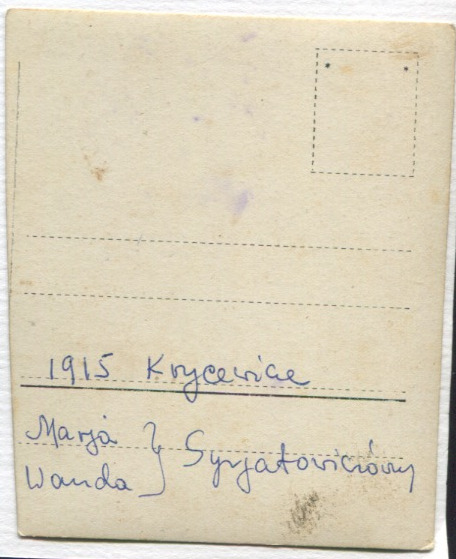 1915 Krycewice
Marja
Wanda } Syrjatowiczówny